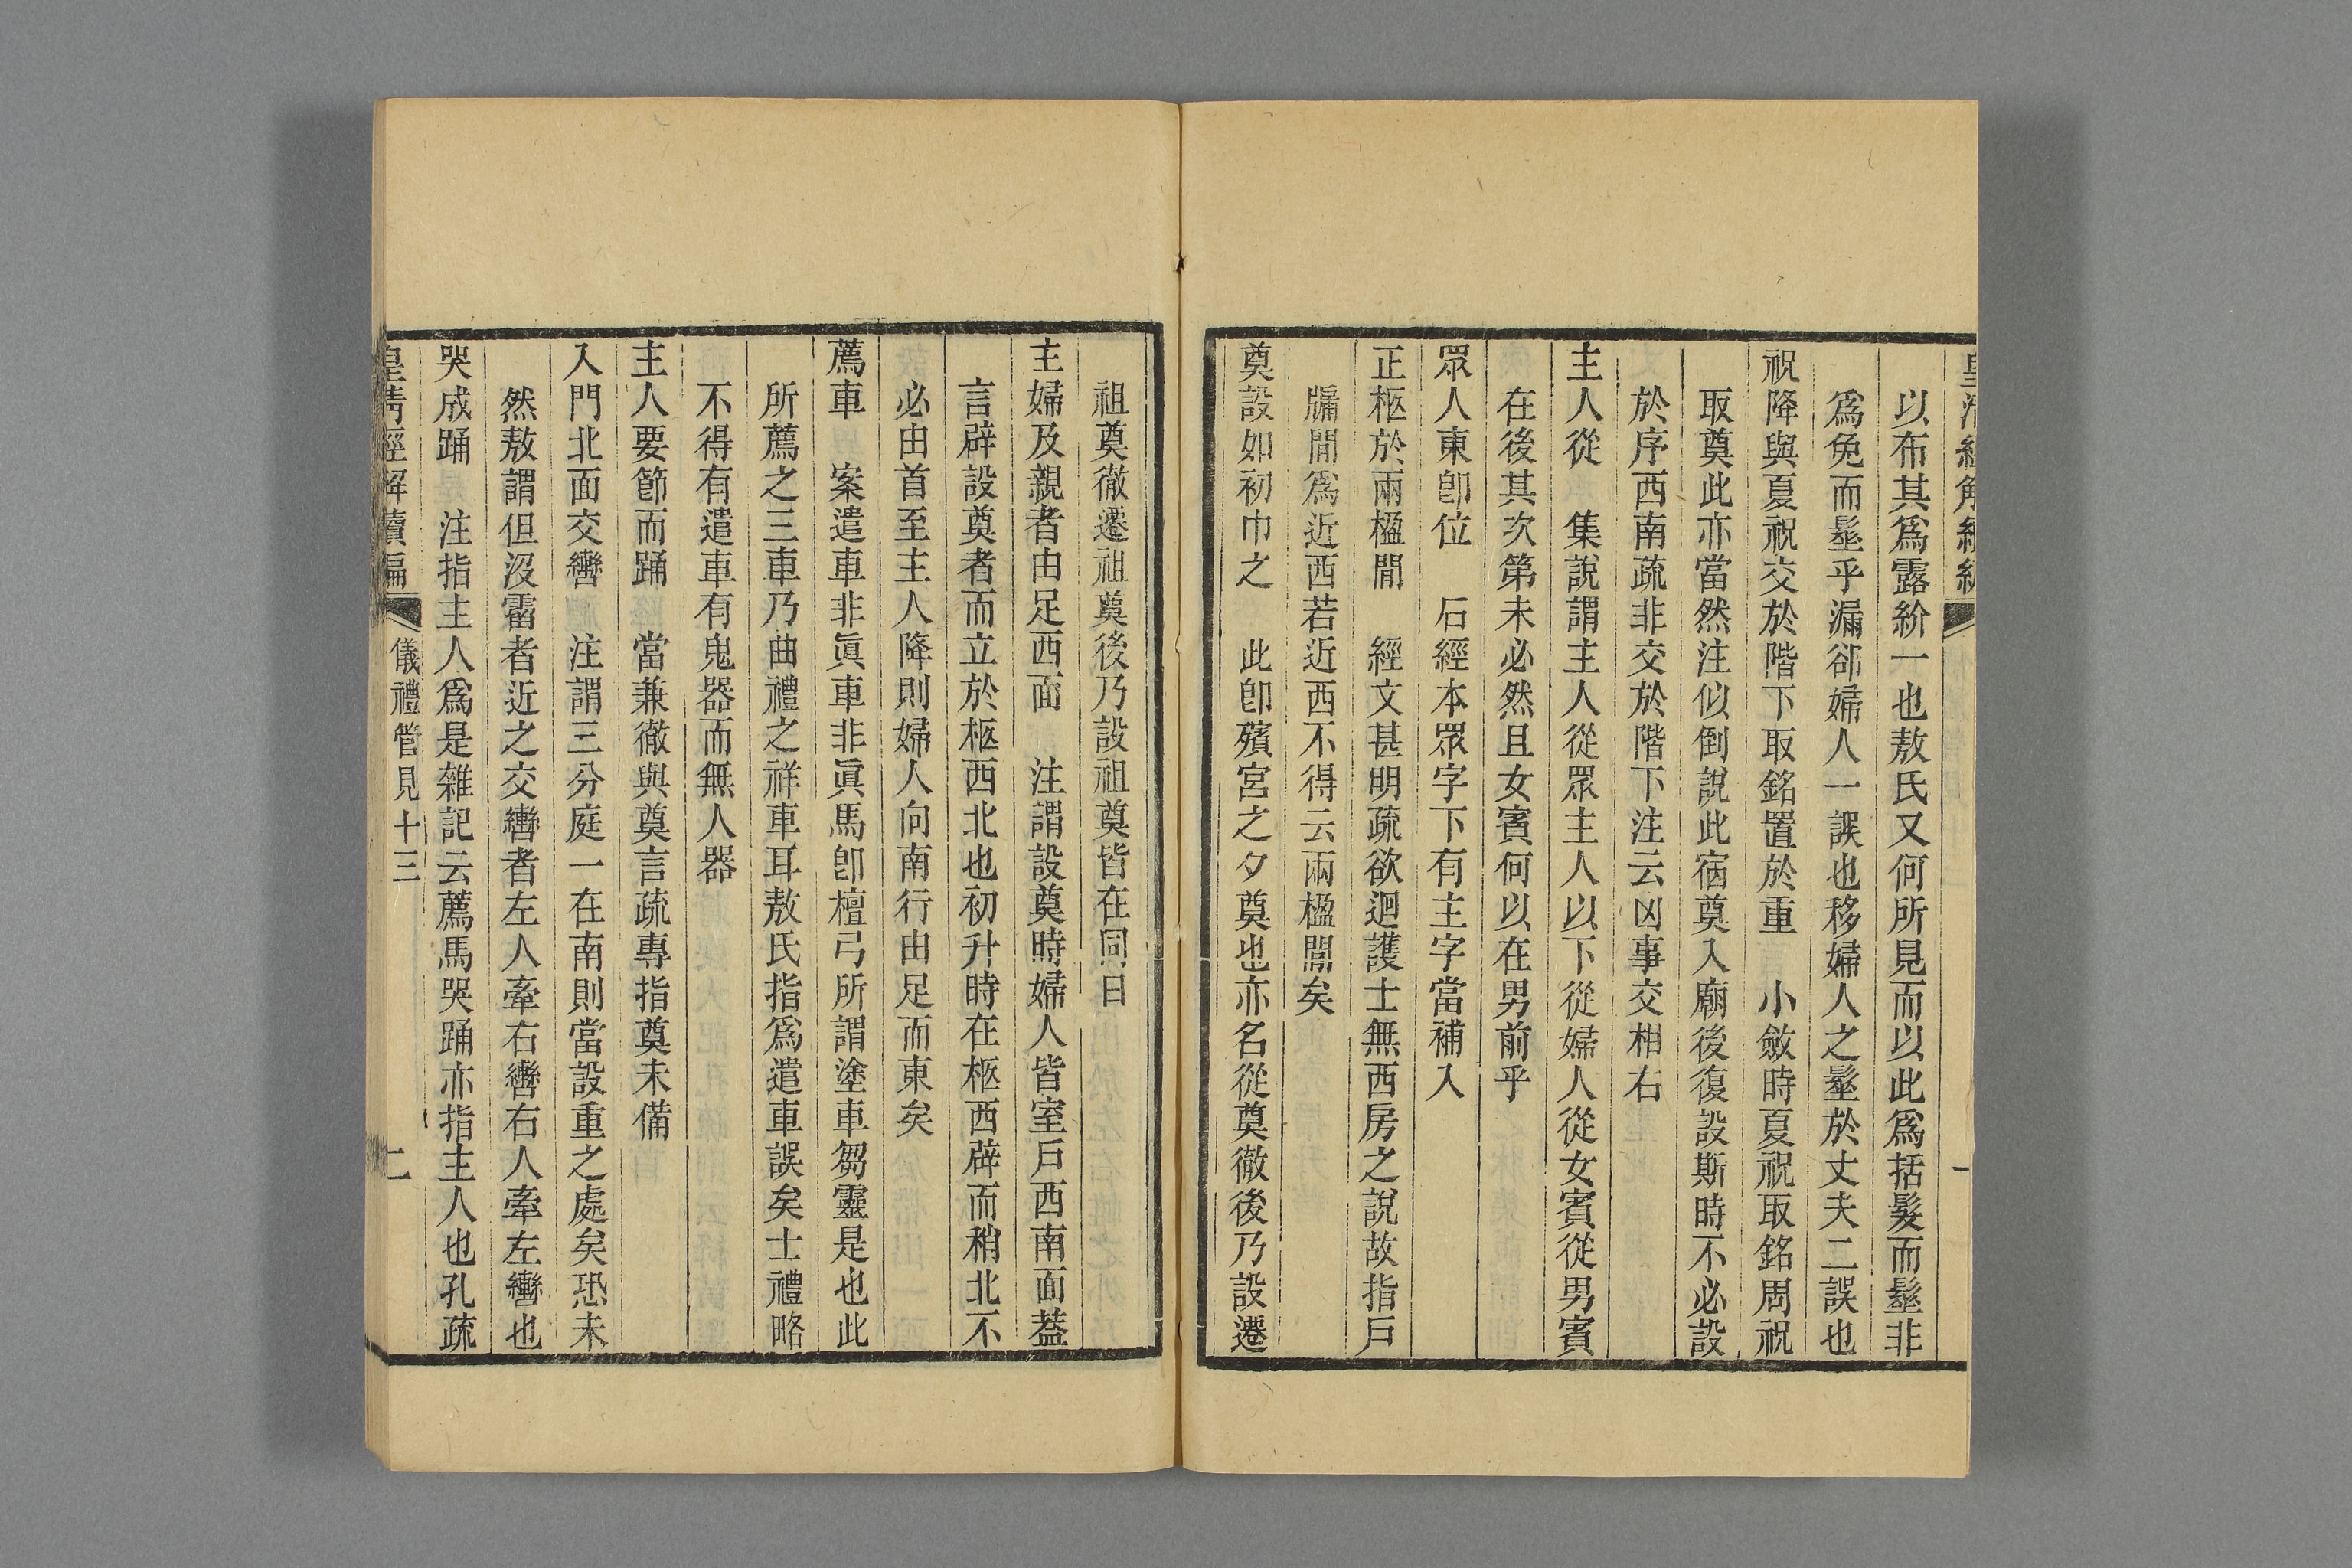 以布其爲露紒一也敖氏又何所見而以此爲括髮而髽非
爲免而髽乎漏卻婦人一誤也移婦人之髽於丈夫二誤也
祝降與夏祝交於階下取銘置於重　小斂時夏祝取銘周祝
取奠此亦當然注似倒說此宿奠入廟後復設斯時不必設
於序西南疏非交於階下注云凶事交相右
主人從　集說謂主人從眾主人以下從婦人從女賓從男賓
在後其次第未必然且女賓何以在男前乎
眾人東卽位　石經本眾字下有主字當補入
正柩於兩楹閒　經文甚明疏欲迴護士無西房之說故指戶
牖閒爲近西若近西不得云兩楹閒矣
奠設如初巾之　此卽殯宮之夕奠也亦名從奠徹後乃設遷
祖奠徹遷祖奠後乃設祖奠皆在同日
主婦及親者由足西面　注謂設奠時婦人皆室戶西南面葢
言辟設奠者而立於柩西北也初升時在柩西辟而稍北不
必由首至主人降則婦人向南行由足而東矣
薦車　案遣車非眞車非眞馬卽檀弓所謂塗車芻靈是也此
所薦之三車乃曲禮之祥車耳敖氏指爲遣車誤矣士禮略
不得有遣車有鬼器而無人器
主人要節而踊　當兼徹與奠言疏專指奠未備
入門北面交轡　注謂三分庭一在南則當設重之處矣恐未
然敖謂但沒霤者近之交轡者左人牽右轡右人牽左轡也
哭成踊　注指主人爲是雜記云薦馬哭踊亦指主人也孔疏
皇清經解續編　儀禮管見十三　二